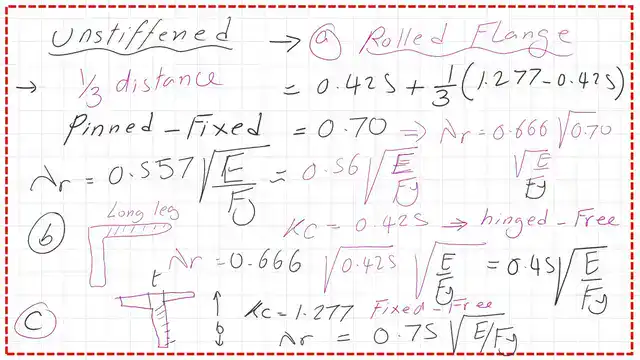 Unstiffened → ⓐ Rolled Flange
→ 1/3 distance = 0.425 + 1/3 (1.277-0.425)
Pinned - Fixed = 0.70 ⇒ λr = 0.666 √0.70 √E/Fy
λr = 0.557 √E/Fy = 0.56 √E/Fy
ⓑ Long leg Kc = 0.425 → hinged - Free
λr = 0.666 √0.425 √E/Fy = 0.45 √E/Fy
t
ⓒ Kc = 1.277 Fixed - Free
λr = 0.75 √E/Fy